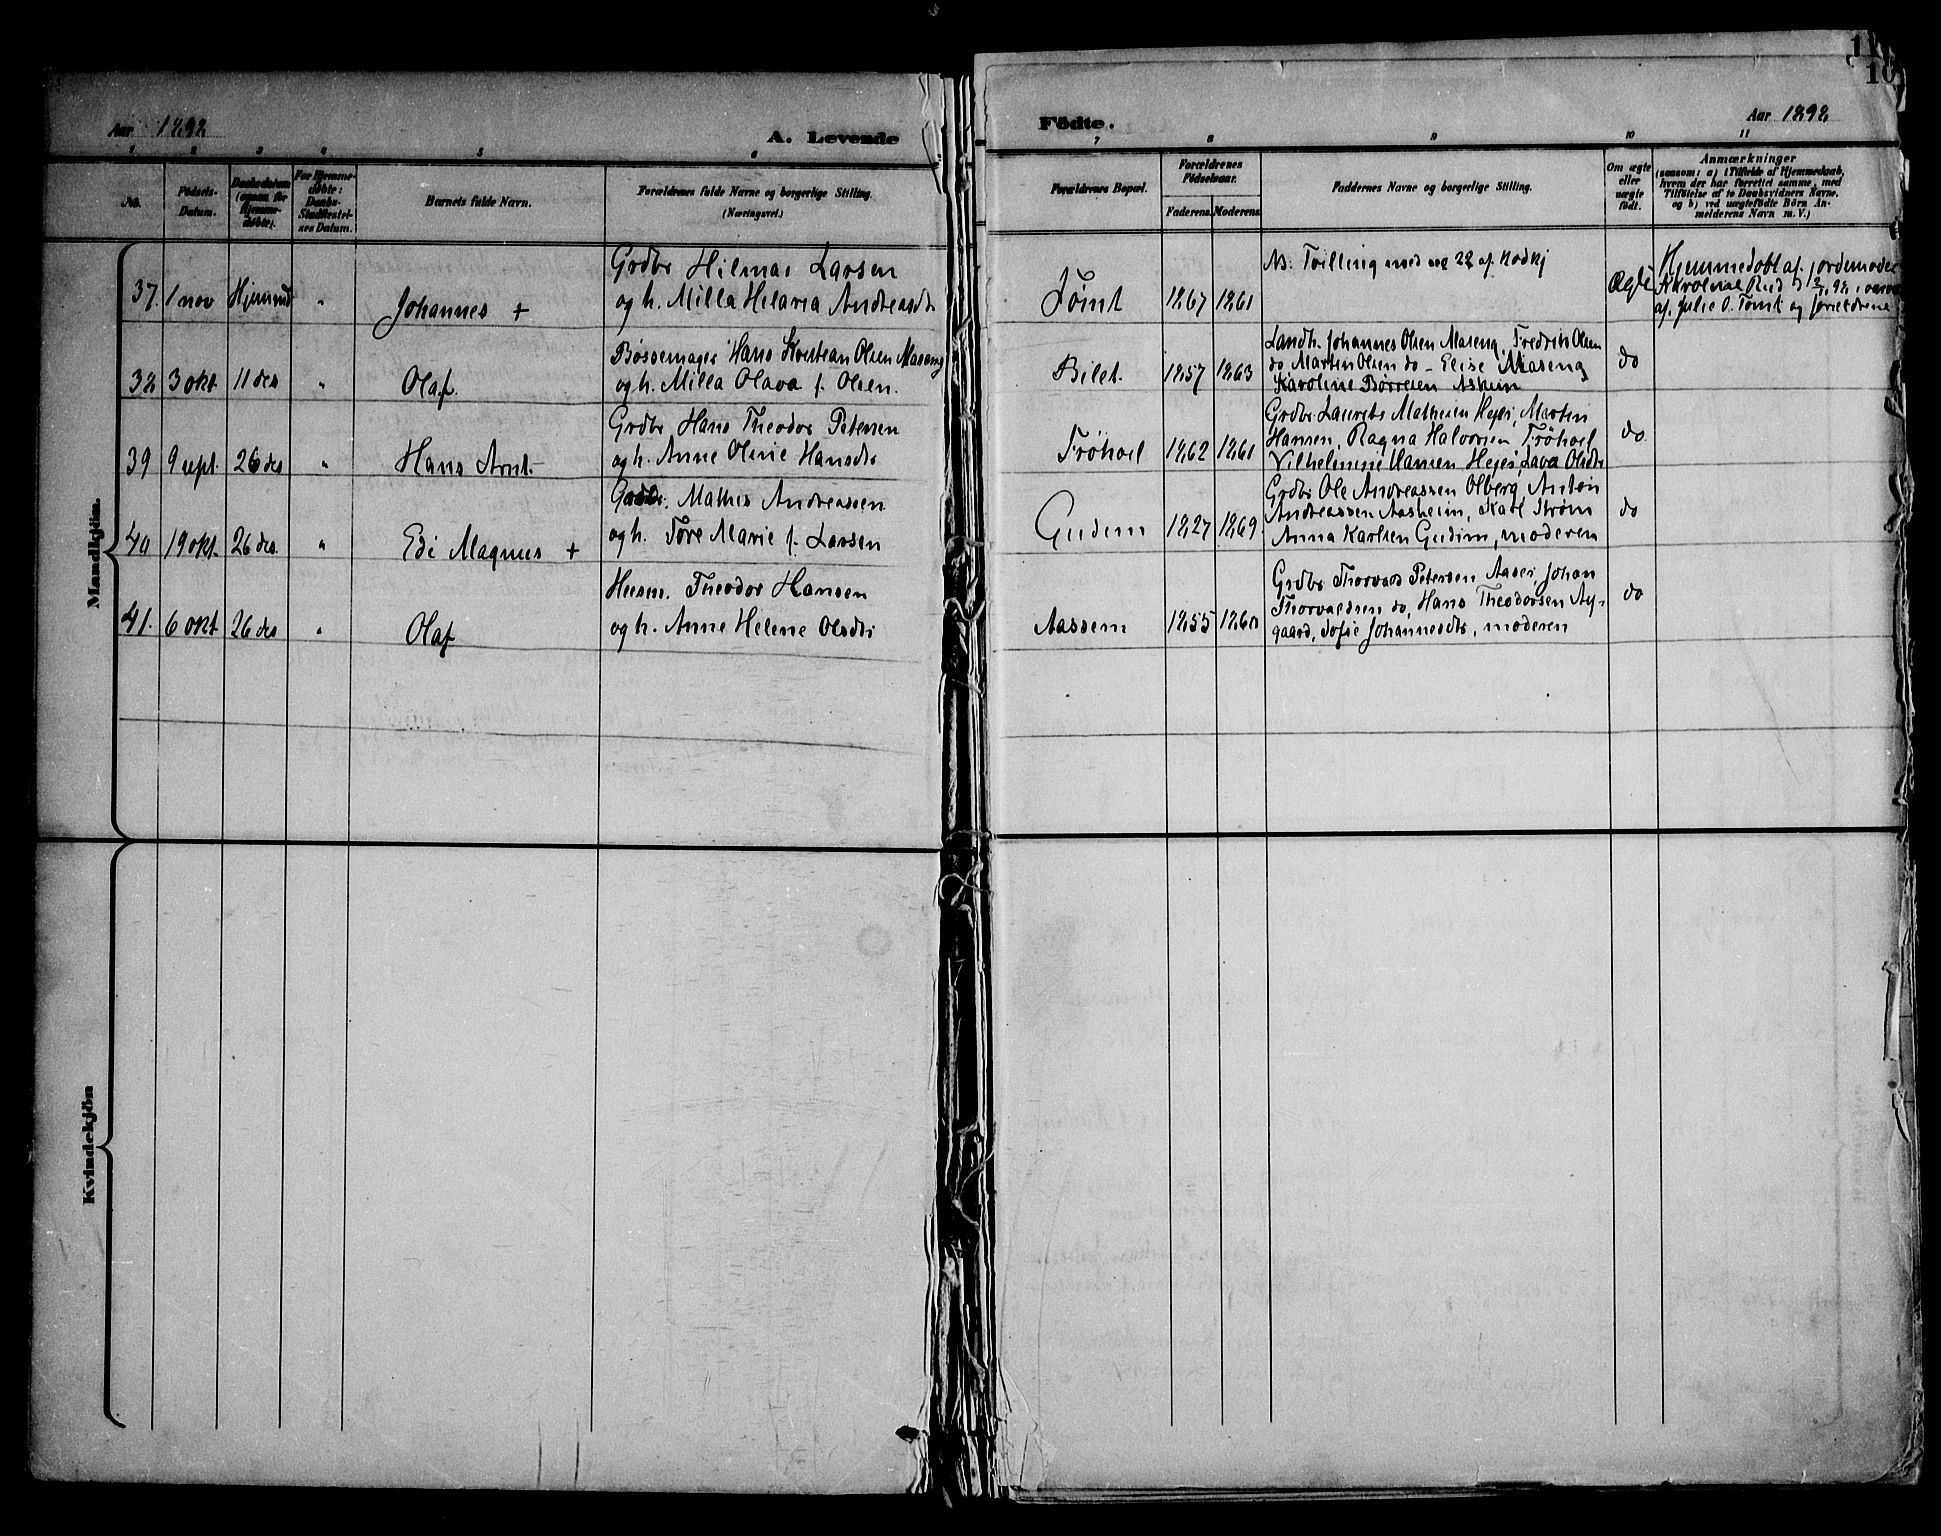 11
10
Aar 1892
A. Levende
Födte.
Aar 1892
1 2 3 4 5 6 7 8 9 10 11
No.
Födsels-
Datum.
Daabsdatum
(ogsaa for
Hjemme-
döbte).
For Hjemme-
döbte:
Daabs-
Stadfæstel-
ses Datum.
Barnets fulde Navn.
Forældrenes fulde Navne og borgerlige Stilling.
(Næringsvei.)
Forældrenes Bopæl.
Forældrenes
Födselsaar.
Faderens. Moderens.
Faddernes Navne og borgerlige Stilling.
Om ægte
eller
uægte
födt.
Anmærkninger
(saasom: a) i Tilfælde af Hjemmedaab,
hvem der har forrettet samme, med
Tilföielse af to Daabsvidners Navne,
og b) ved uægtefödte Börn An-
melderens Navn m. V.)
Mandkjön.
37 1 nov Hjemmed " Johannes +
Grdbr Hilmar Larsen
og h. Milla Helaria Andreasdt
Tømt 1867 1861
NB: Tvilling med 22 af Kvdkj
Ægte
Hjemmedøbt af jordemoder
Karoline Rud
af Julie O. Tømt og forældrene
38 3 okt 11 des " Olaf.
Bøssemager Hans Kristian Olsen Maseng
og h. Milla Olava f. Olsen.
Bilet. 1857 1863
Landh. Johannes Olsen Maseng, Fredrik Olsen
do Martin Olsen do – Elise Maseng
Karoline Børresen Asheim
do
39 9 sept. 26 des " Hans Arnt.
Grdbr Hans Theodor Petersen
og h. Anne Oline Hansdtr
Trøhoel 1862 1861
Grdbr Laurits Mathisen Hejer, Martin
Hansen, Ragna Halvorsen Trøhoel
Vilhelmine Hansen Hejer, Lava Olsdtr
do
40 19 okt. 26 des. " Edi Magnus +
Grdbr. Mathis Andreassen
og h. Tore Marie f. Larsen
Gudim 1827 1869.
Grdbr Ole Andreassen Olberg, Anton
Andreassen Aasheim, Karl Strøm
Anna Karlsen Gudim, moderen
do
41. 6 okt 26 des " Olaf
Husm. Theodor Hansen
og h. Anne Helene Olsdtr
Aassem 1855 1860
Grdbr Thorvald Petersen Aaser, Johan
Thorvaldsen do, Hans Theodorsen Ny-
gaard, Sofie Johannesdtr, moderen
do
Kvindekjön